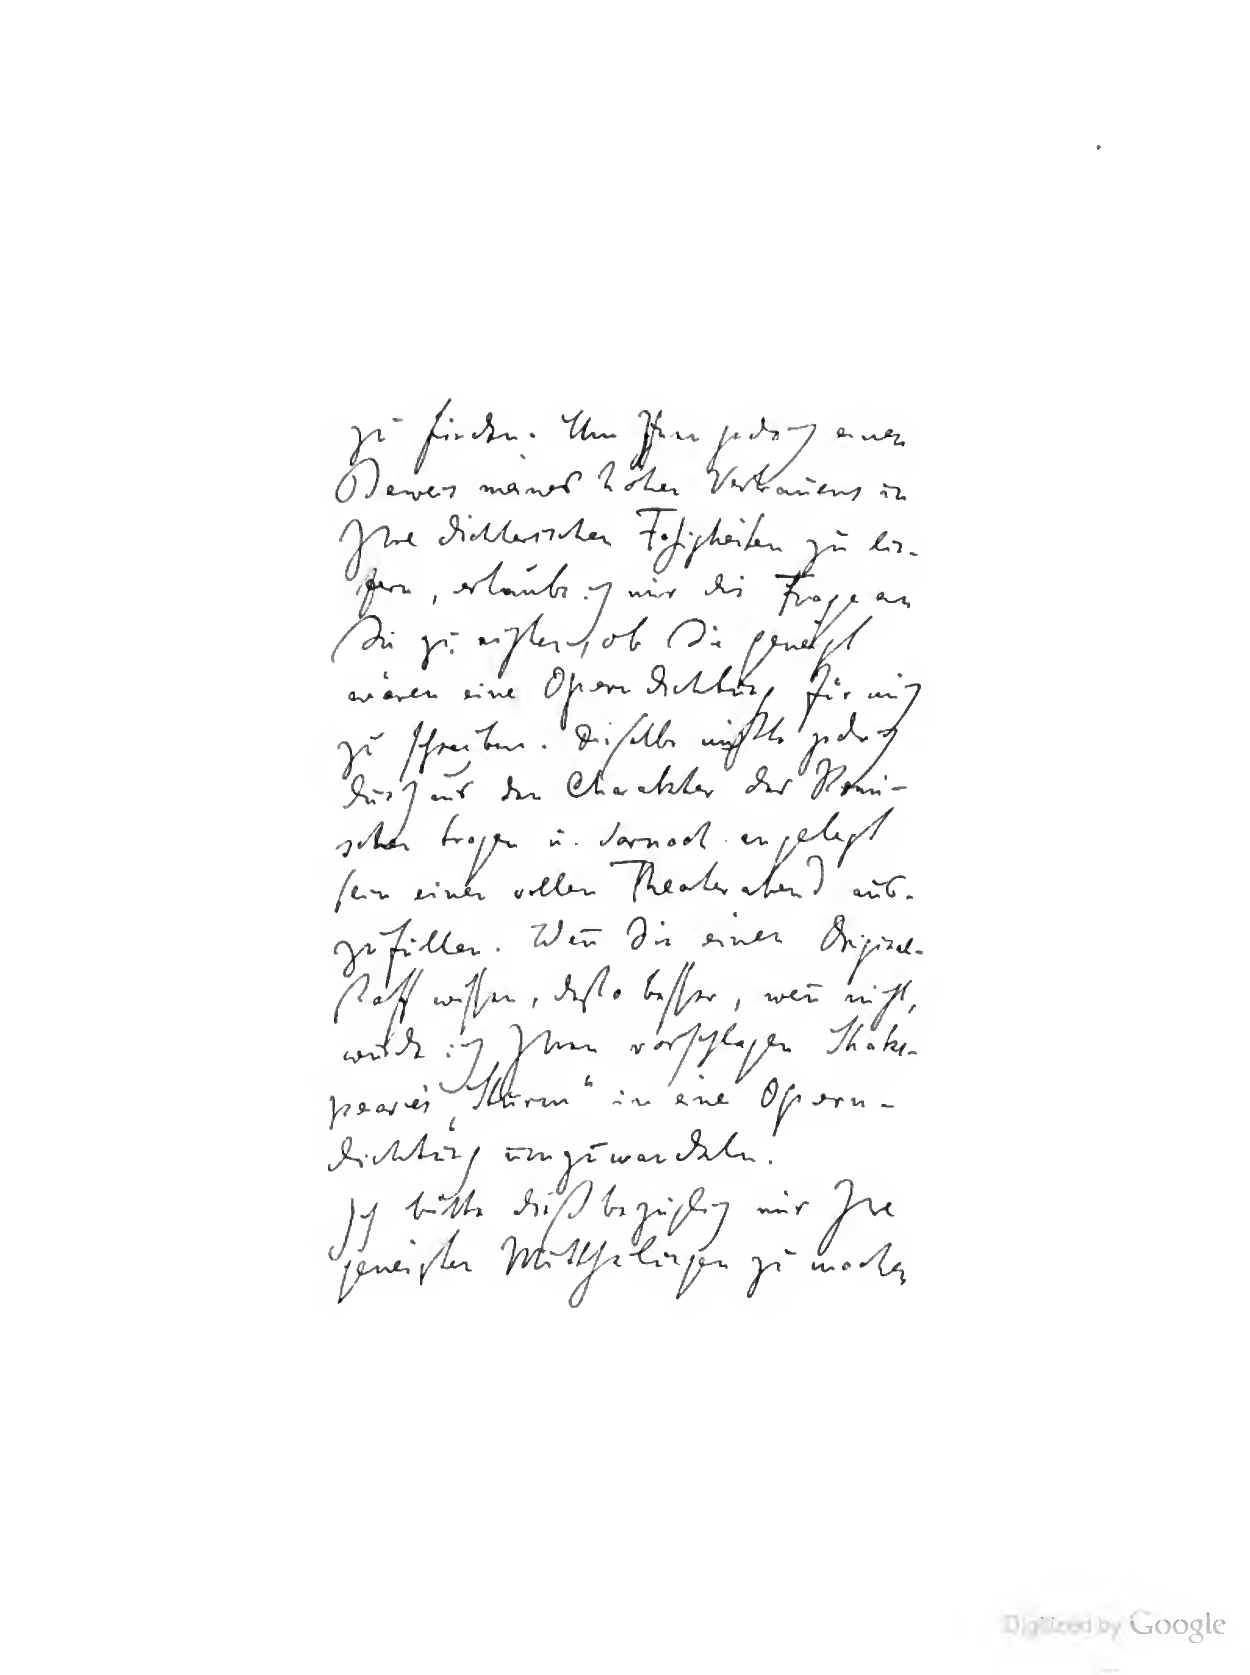 zu finden. Um Ihnen jedoch einen
Beweis meines hohen Vertrauens in
Ihre dichterischen Fähigkeiten zu lie-
fern, erlaube ich mir die Frage an
Sie zu richten, ob Sie geneigt
wären eine Operndichtung für mich
zu schreiben. Dieselbe müßte jedoch
durchaus den Charakter des Komi-
schen tragen u. darnach angelegt
sein einen vollen Theaterabend aus-
zufüllen. Weñ Sie einen Original-
stoff wissen, desto besser, weñ nicht,
würde ich Ihnen vorschlagen Shake-
peare's „Sturm“ in eine Opern-
dichtung umzuwandeln.
Ich bitte dießbezüglich mir Ihre
geneigten Mittheilungen zu machen
Digitized by Google